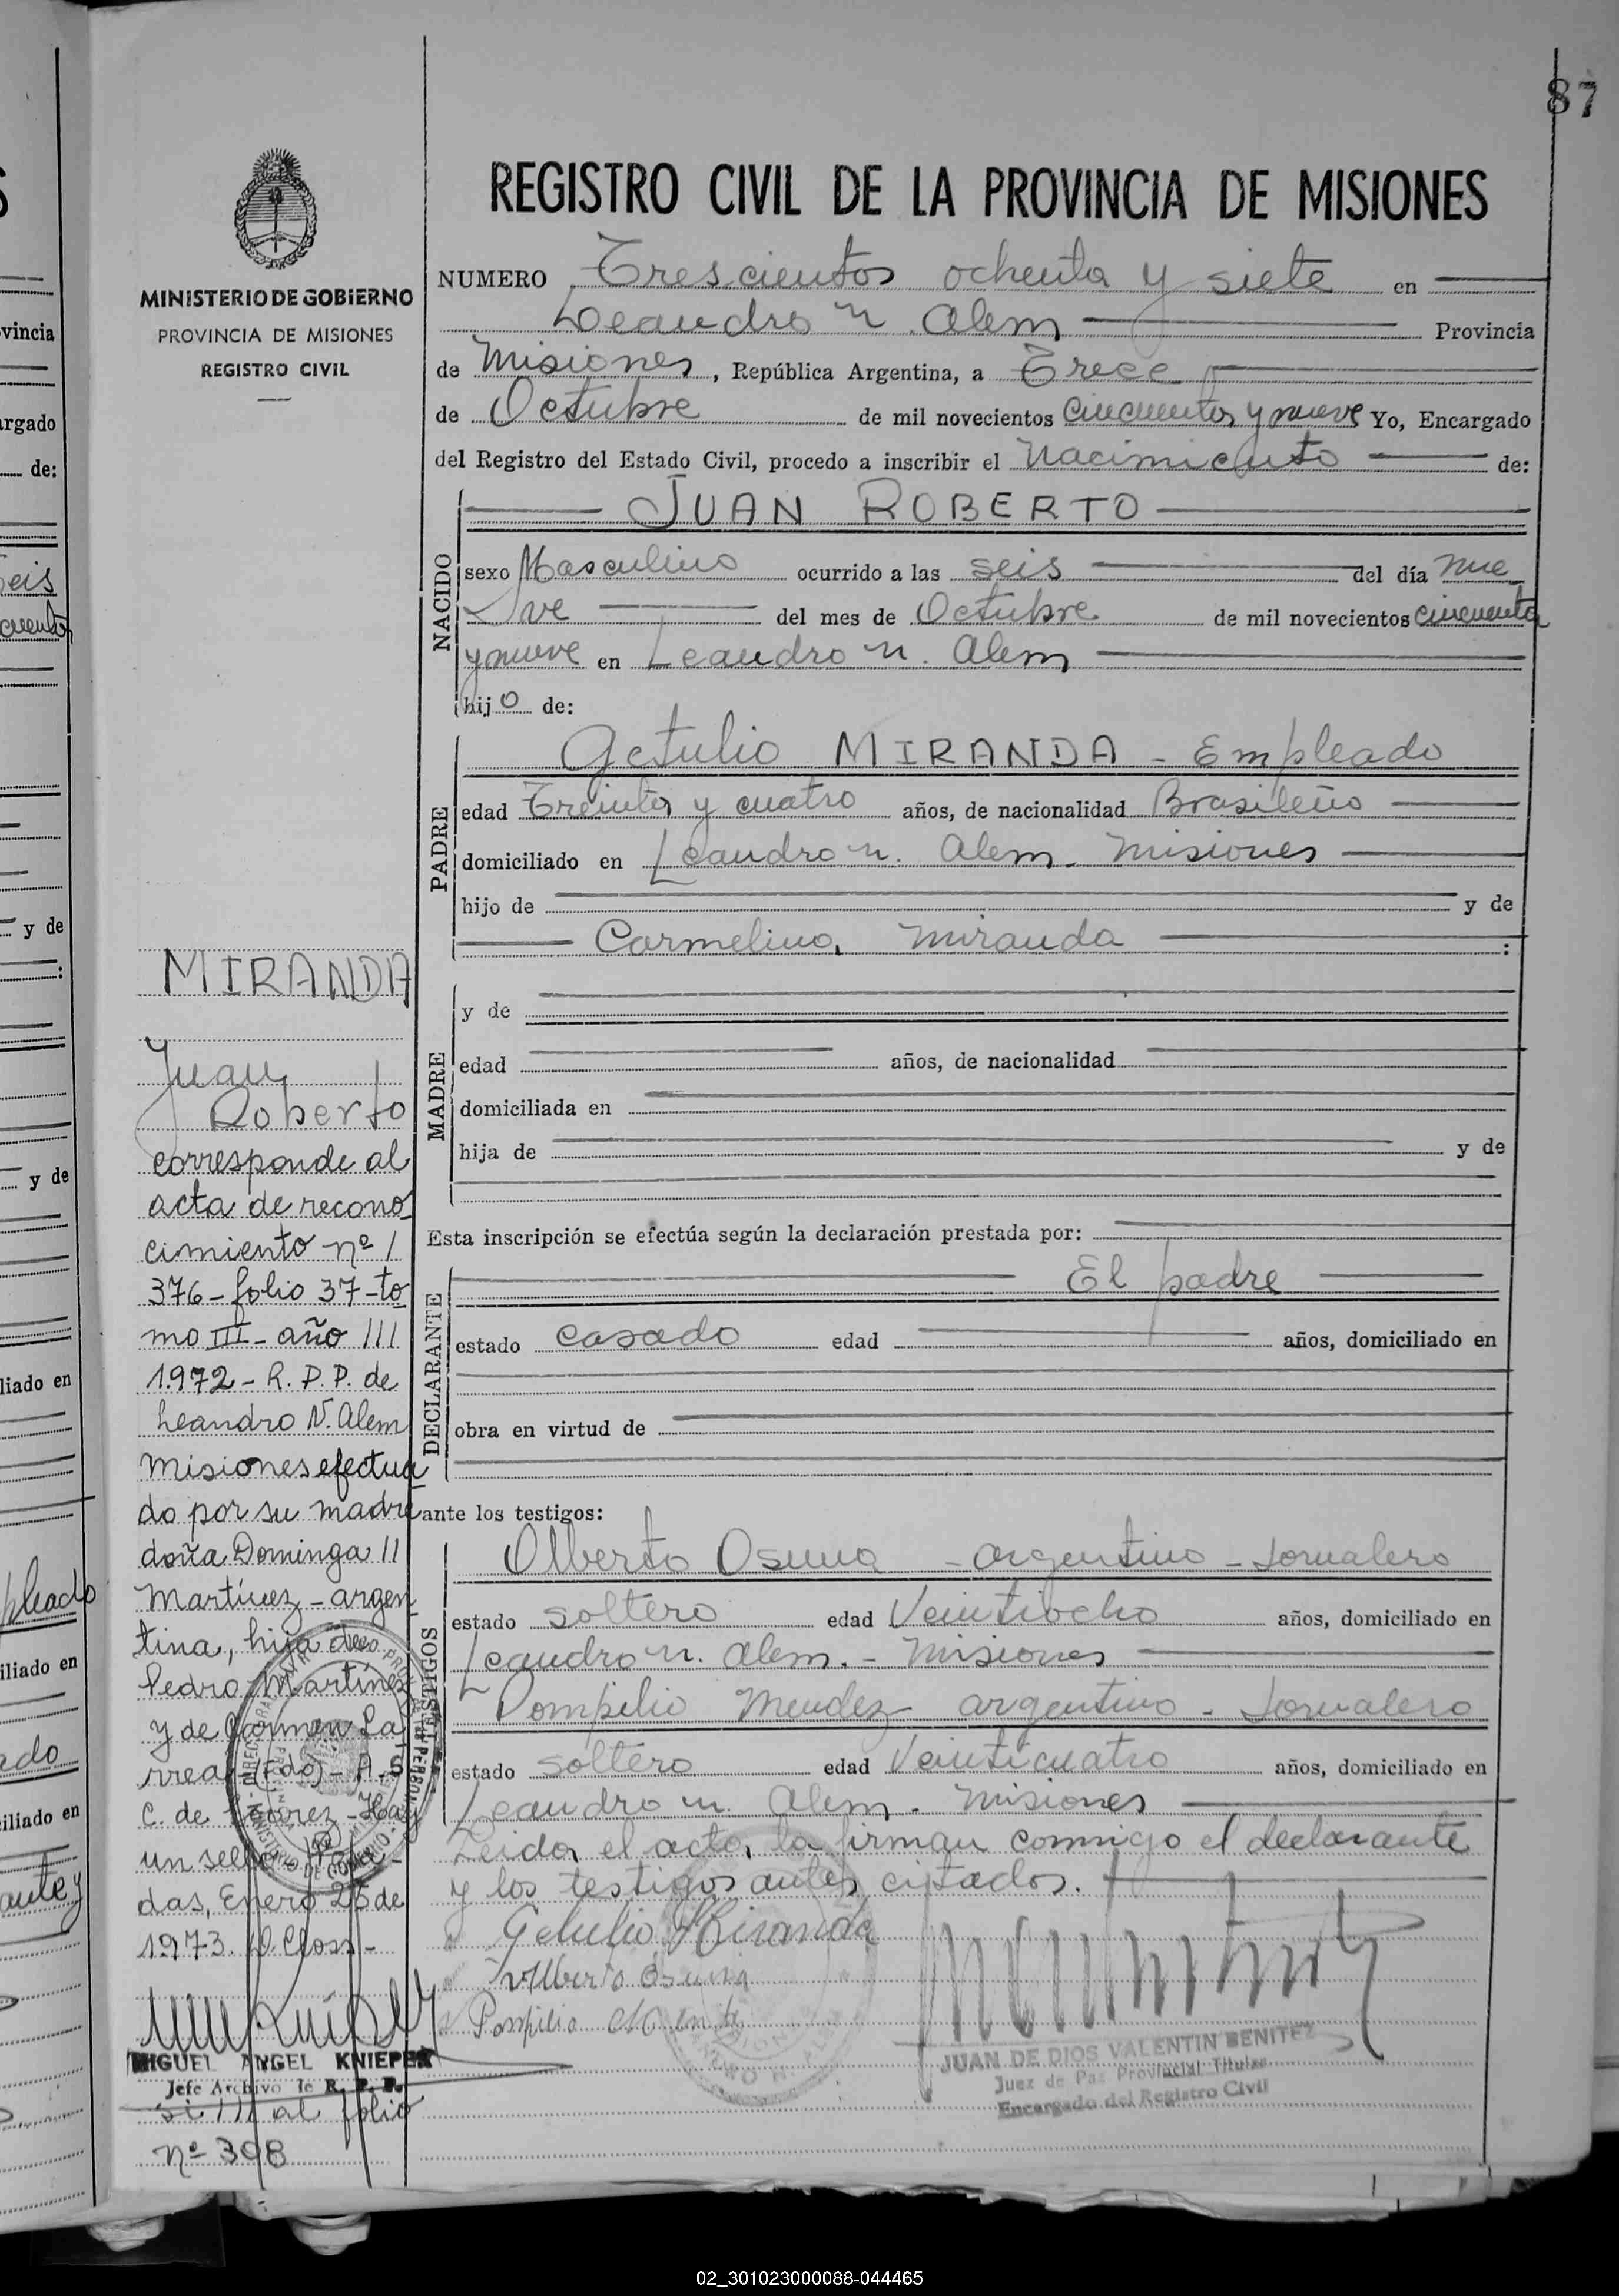 87
MINISTERIO DE GOBIERNO
PROVINCIA DE MISIONES
REGISTRO CIVIL
REGISTRO CIVIL DE LA PROVINCIA DE MISIONES
NUMERO Trescientos ochenta y siete en
Leandro N. Alem Provincia
de Misiones, República Argentina, a Trece
de Octubre de mil novecientos cincuenta y nueve Yo, Encargado
del Registro del Estado Civil, procedo a inscribir el Nacimiento de:
NACIDO
JUAN ROBERTO
sexo Masculino ocurrido a las seis del día nue
ve del mes de Octubre de mil novecientos cincuenta
y nueve en Leandro N. Alem
hijo de:
PADRE
Getulio MIRANDA - Empleado
edad Treinta y cuatro años, de nacionalidad Brasileño
domiciliado en Leandro N. Alem - Misiones
hijo de y de
Carmelina Miranda :
MADRE
y de
edad años, de nacionalidad
domiciliada en
hija de y de
Esta inscripción se efectúa según la declaración prestada por:
DECLARANTE
El padre
estado casado edad años, domiciliado en
obra en virtud de
ante los testigos:
TESTIGOS
Alberto Osuna - argentino - Jornalero
estado soltero edad Veintiocho años, domiciliado en
Leandro N. Alem. - Misiones
Pompilio Mendez argentino - Jornalero
estado soltero edad Veinticuatro años, domiciliado en
Leandro N. Alem - Misiones
Leida el acta, la firman conmigo el declarante
y los testigos antes citados.
Getulio Miranda
Alberto Osuna
Pompilio
JUAN DE DIOS VALENTIN BENITEZ
Juez de Paz Provincial Titular
Encargado del Registro Civil
MIRANDA
Juan
Roberto
corresponde al
acta de recono
cimiento nº /
376 - folio 37 - to
mo III - año ///
1.972 - R. P. P. de
Leandro N. Alem
Misiones efectua
do por su madre
doña Dominga //
Martínez - argen
tina, hija de
Pedro Martínez
y de Carmen La
rrea - (Fdo) - A. S.
C. de - Hay
un sello Posa -
das, Enero 25 de
1973.
MIGUEL ANGEL KNIEPER
Jefe Archivo de R. P. P.
si /// al folio
nº 398
vincia
argado
de:
seis
cuenta
y de
:
y de
liado en
pleado
iliado en
ado
iliado en
ante y
02_301023000088-044465